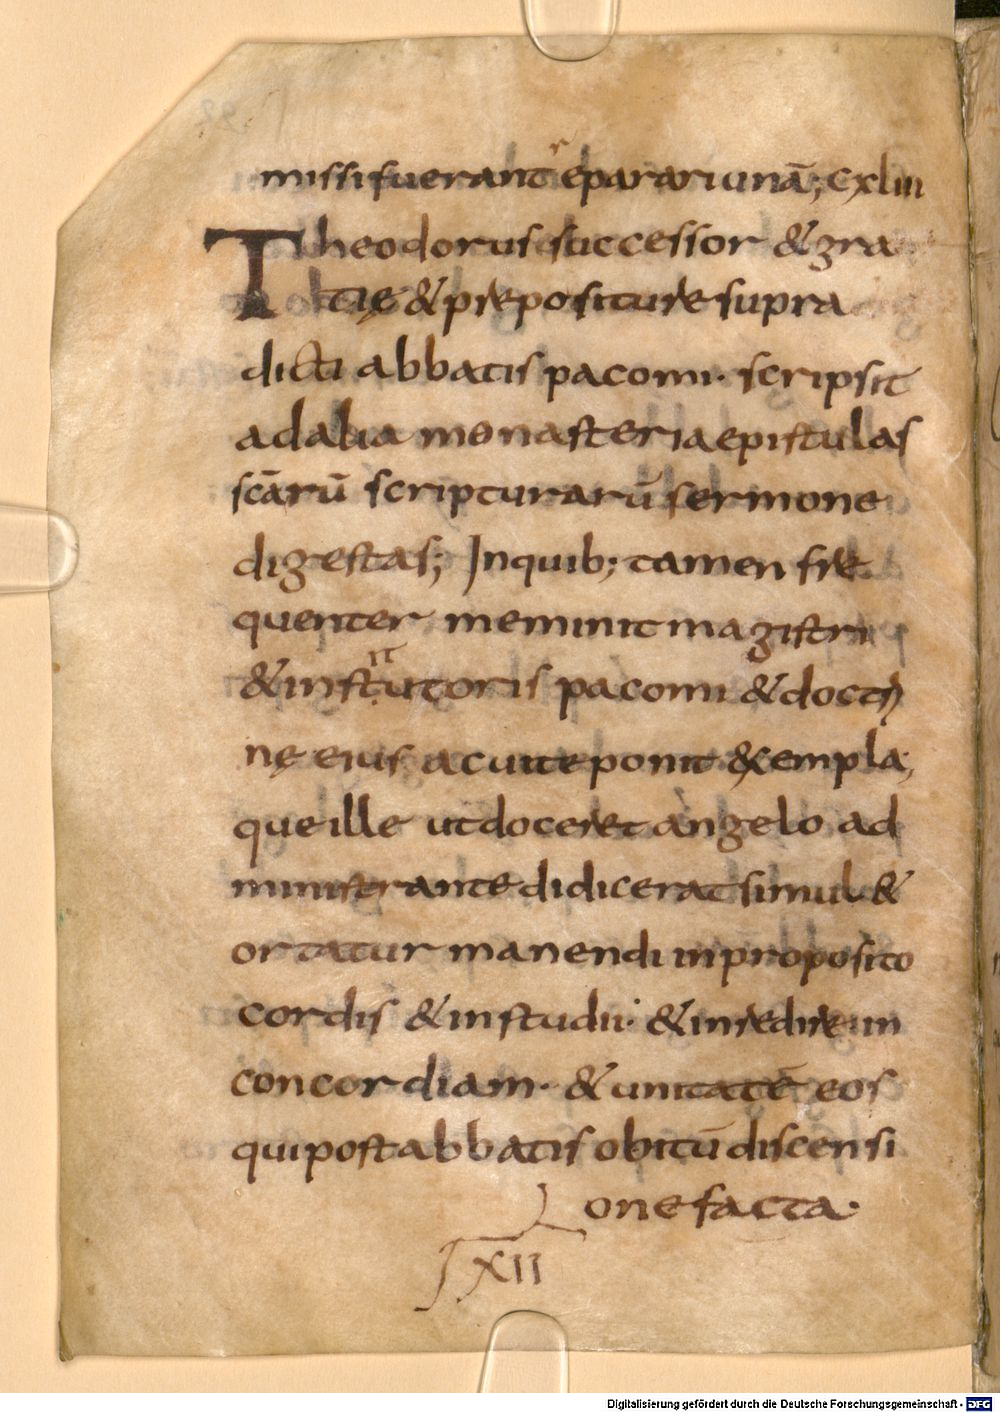 missi fuerant reparari unā; CXLIII
Theodorus successor & gra
tię & prepositure supra
dicti abbatis pacomi· scripsit
ad alia monasteria epistulas
scārū scripturarū sermone
digestas; In quib; tamen fre
quenter meminit magistri
& institutoris pacomi & doctri
nę eius ac uite ponit exempla;
que ille ut doceret angelo ad
ministrante didicerat simul &
ortatur manendi in proposito
cordis & in studii· & in redire in
concordiam· & unitatē eos
qui post abbatis obitū discensi
one facta·
XII
Digitalisierung gefördert durch die Deutsche Forschungsgemeinschaft - DFG